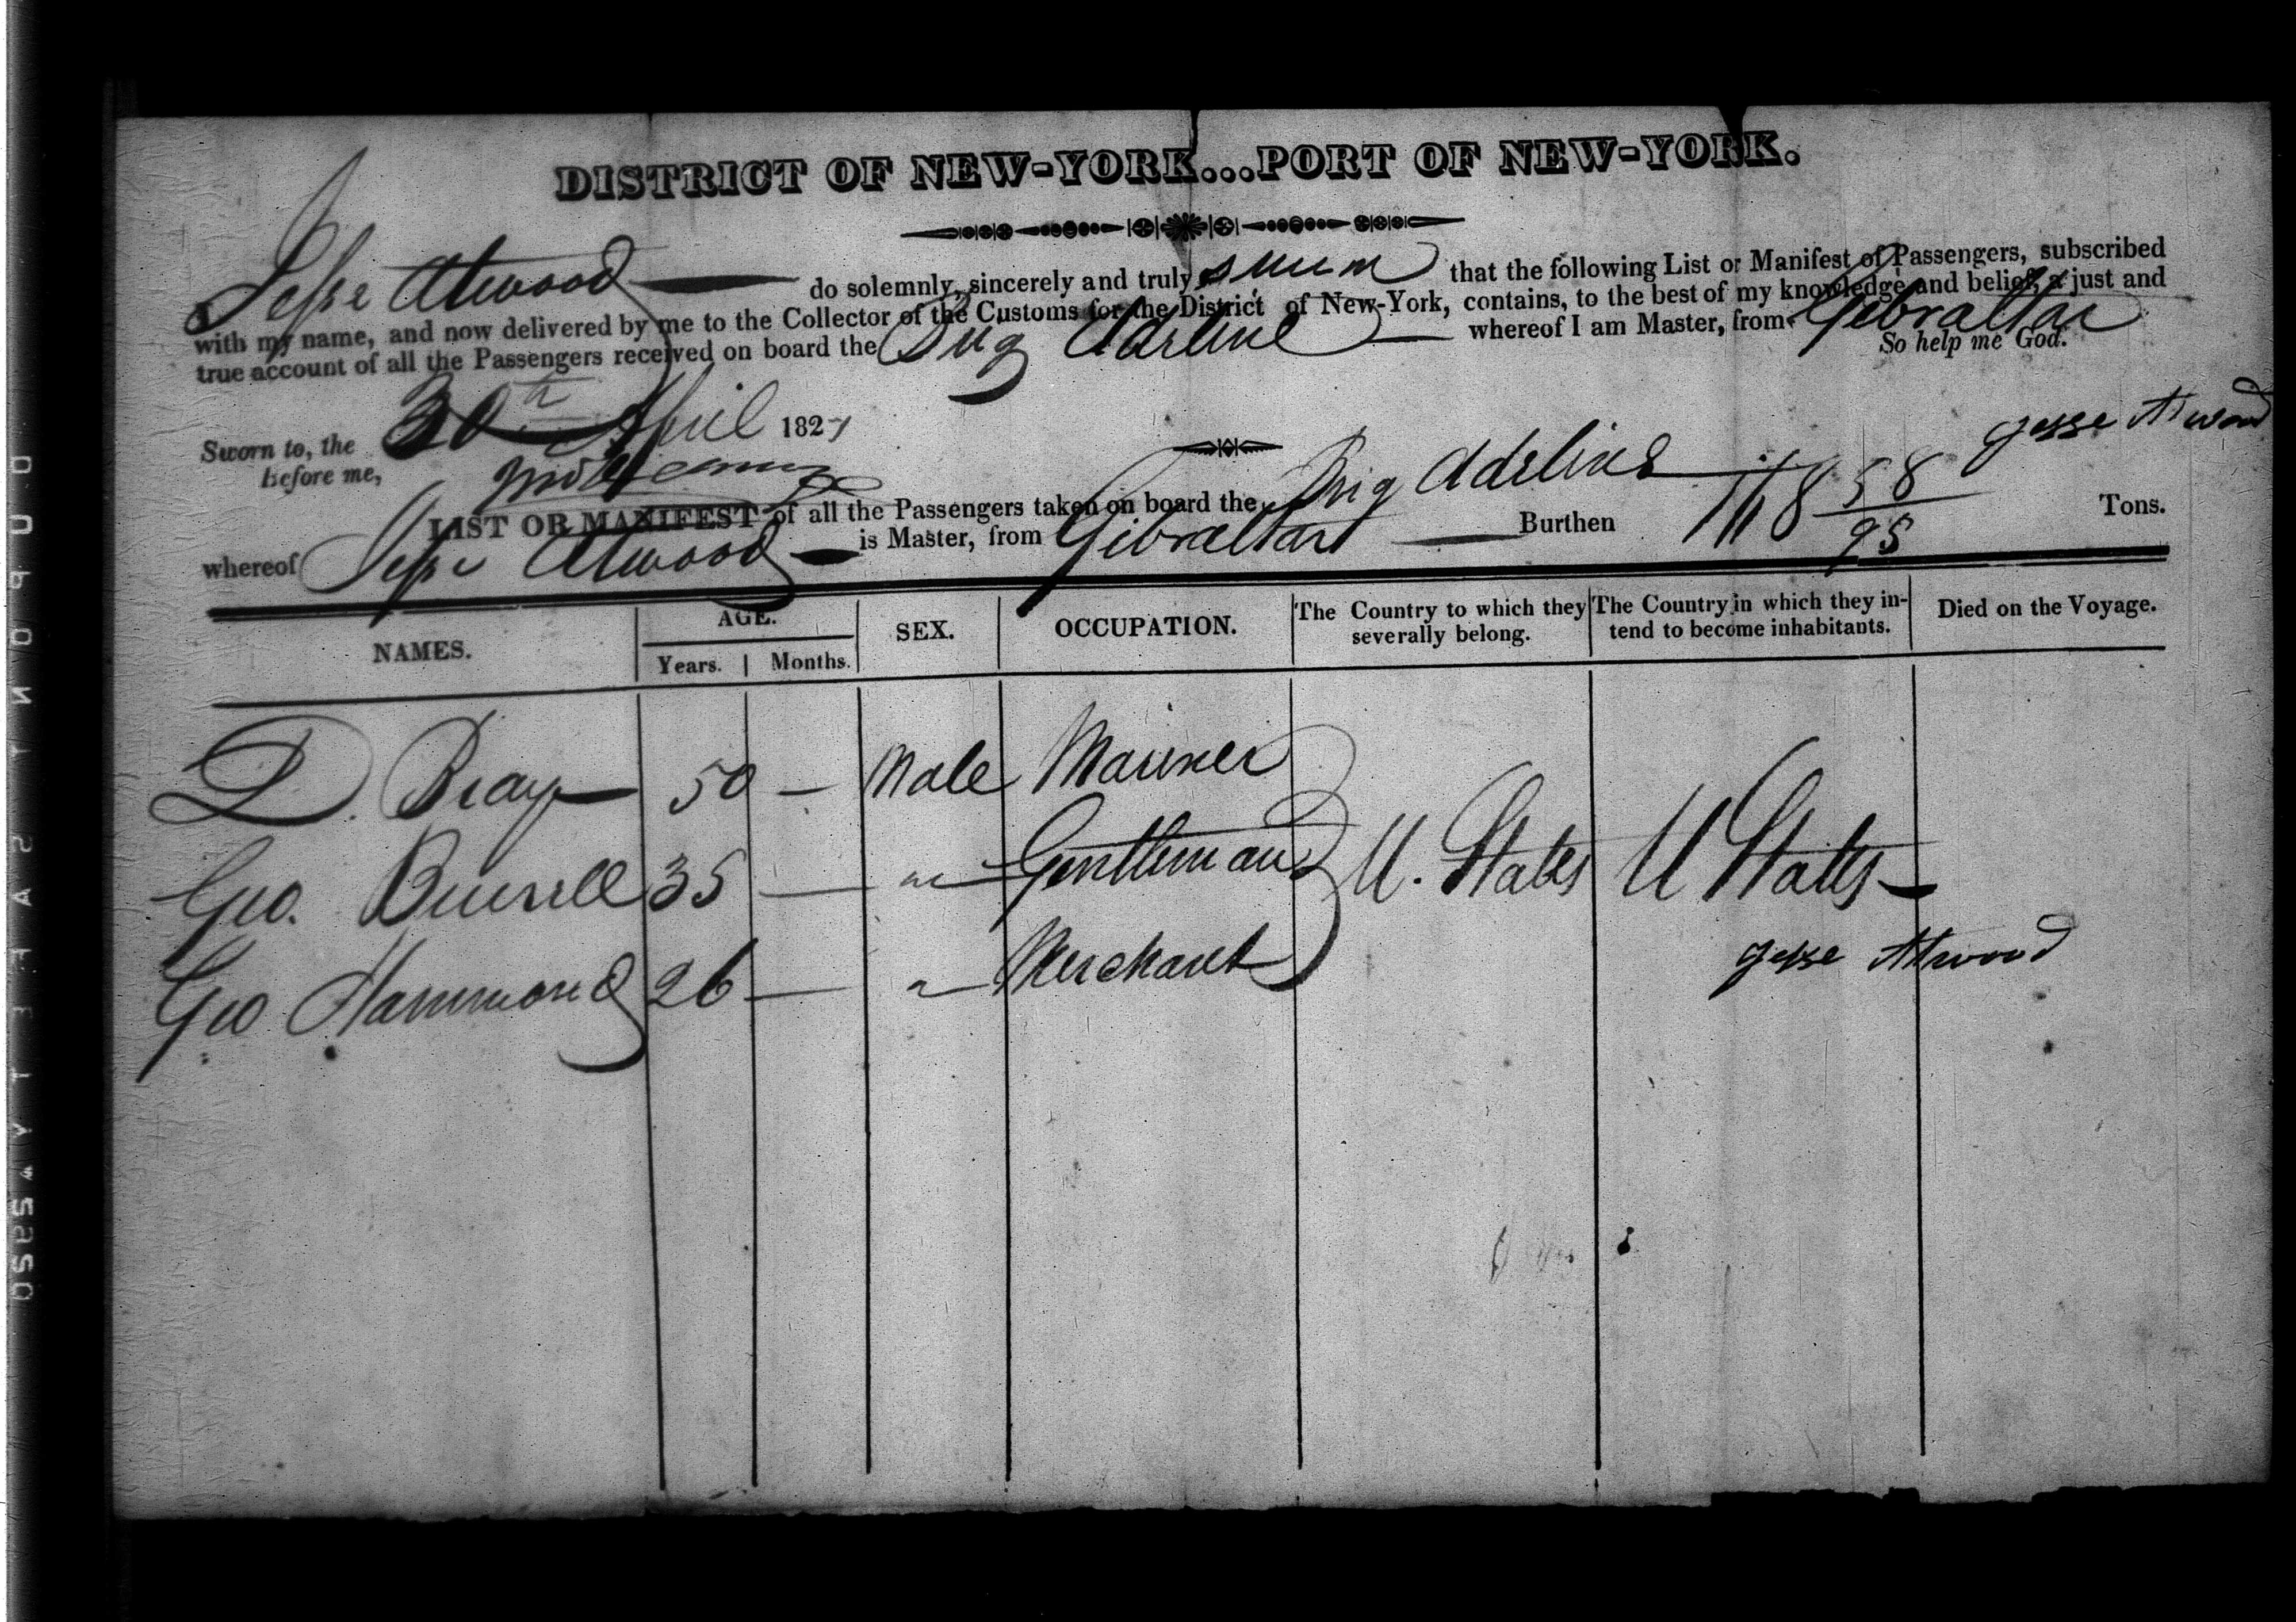 DISTRICT OF NEW-YORK...PORT OF NEW-YORK.
I Jesse Atwood do solemnly, sincerely and truly swear that the following List or Manifest of Passengers, subscribed
with my name, and now delivered by me to the Collector of the Customs for the District of New-York, contains, to the best of my knowledge and belief, a just and
true account of all the Passengers received on board the Brig Adeline whereof I am Master, from Gibraltar
So help me God.
Sworn to, the 30th April 1827
before me,
Jesse Atwood
LIST OR MANIFEST of all the Passengers taken on board the Brig Adeline
whereof Jesse Atwood is Master, from Gibraltar Burthen 118 58/95 Tons.
NAMES. AGE. SEX. OCCUPATION. The Country to which they severally belong. The Country in which they intend to become inhabitants. Died on the Voyage.
Years. Months.
D. Bray 50 — Male Mariner
Geo. Burrell 35 — " Gentleman U. States U States
Geo Hammond 26 — " Merchant
Jesse Atwood